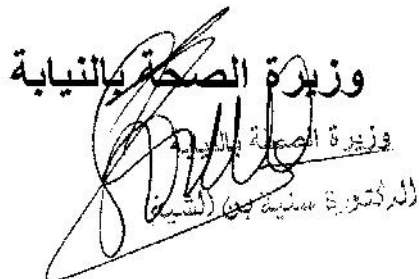 وزيرة الصحة بالنيابة
وزيرة الصحة بالنيابة
الدكتورة سنية بن الشيخ